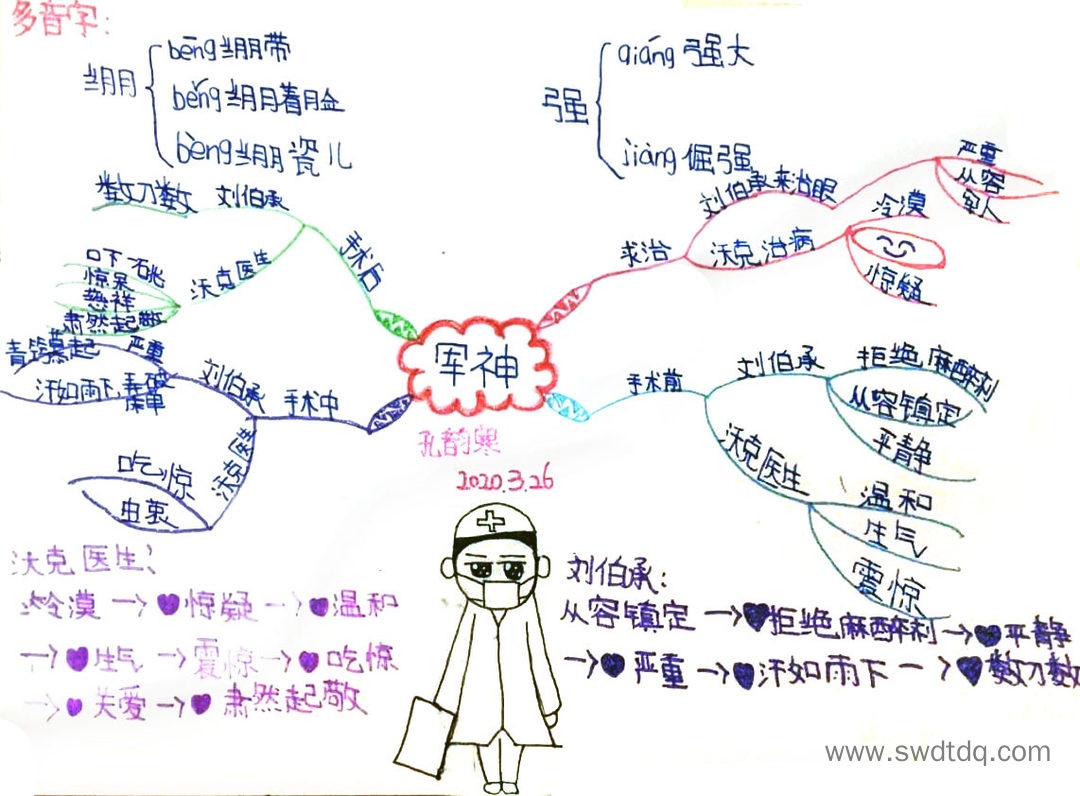 多音字:
绷
bēng绷带
běng绷着脸
bèng绷瓷儿
强
qiáng强大
jiàng倔强
军神
孔韵寒
2020.3.26
求治
刘伯承来治眼
严重
从容
军人
沃克治病
冷漠
惊疑
手术前
刘伯承
拒绝麻醉剂
从容镇定
平静
沃克医生
温和
生气
震惊
手术中
刘伯承
严重
青筋暴起
汗如雨下,弄破床单
沃克医生
吃惊
由衷
手术后
刘伯承
数刀数
沃克医生
吓一跳
惊呆
慈祥
肃然起敬
沃克医生:
冷漠→惊疑→温和
→生气→震惊→吃惊
→关爱→肃然起敬
刘伯承:
从容镇定→拒绝麻醉剂→平静
→严重→汗如雨下→数刀数
www.swdtdq.com